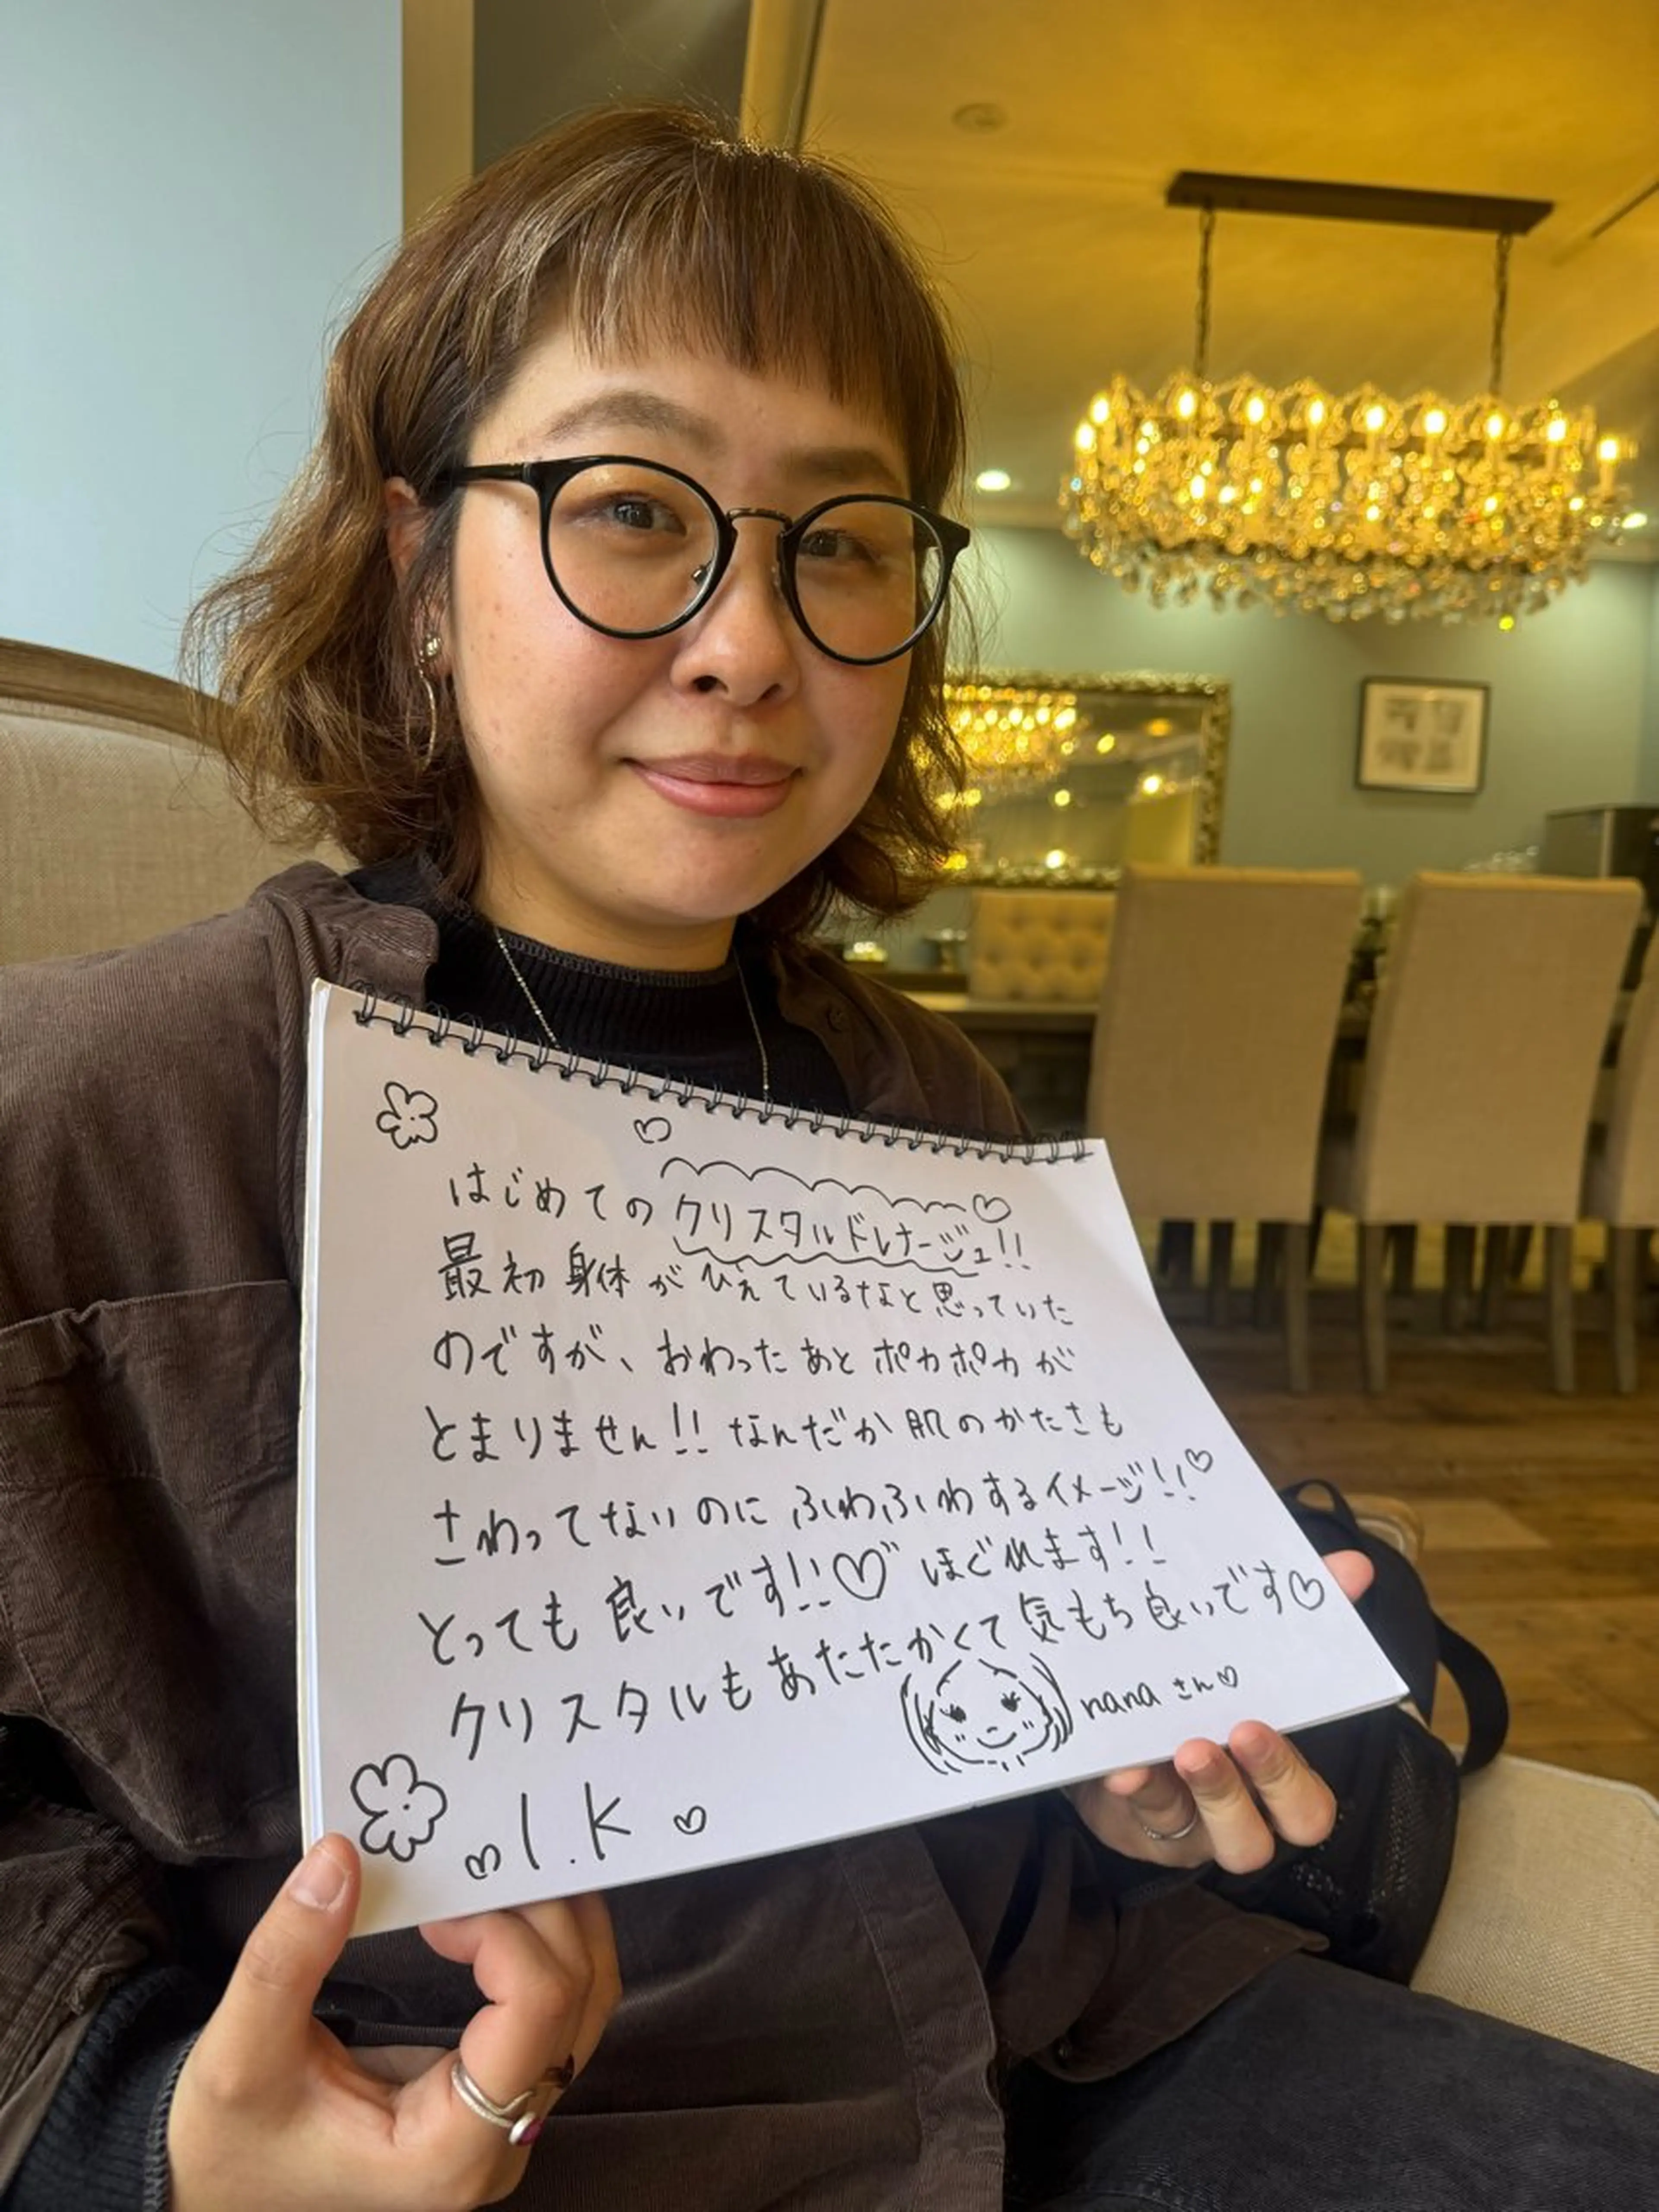 はじめてのクリスタルドレナージュ!!
最初身体がひえているなと思っていた
のですが、おわったあとポカポカが
とまりません!! なんだか肌のかたさも
さわってないのにふわふわするイメージ!!♡
とっても良いです!!♡ ほぐれます!!
クリスタルもあたたかくて気もち良いです♡
nanaさん♡
♡ I.K ♡